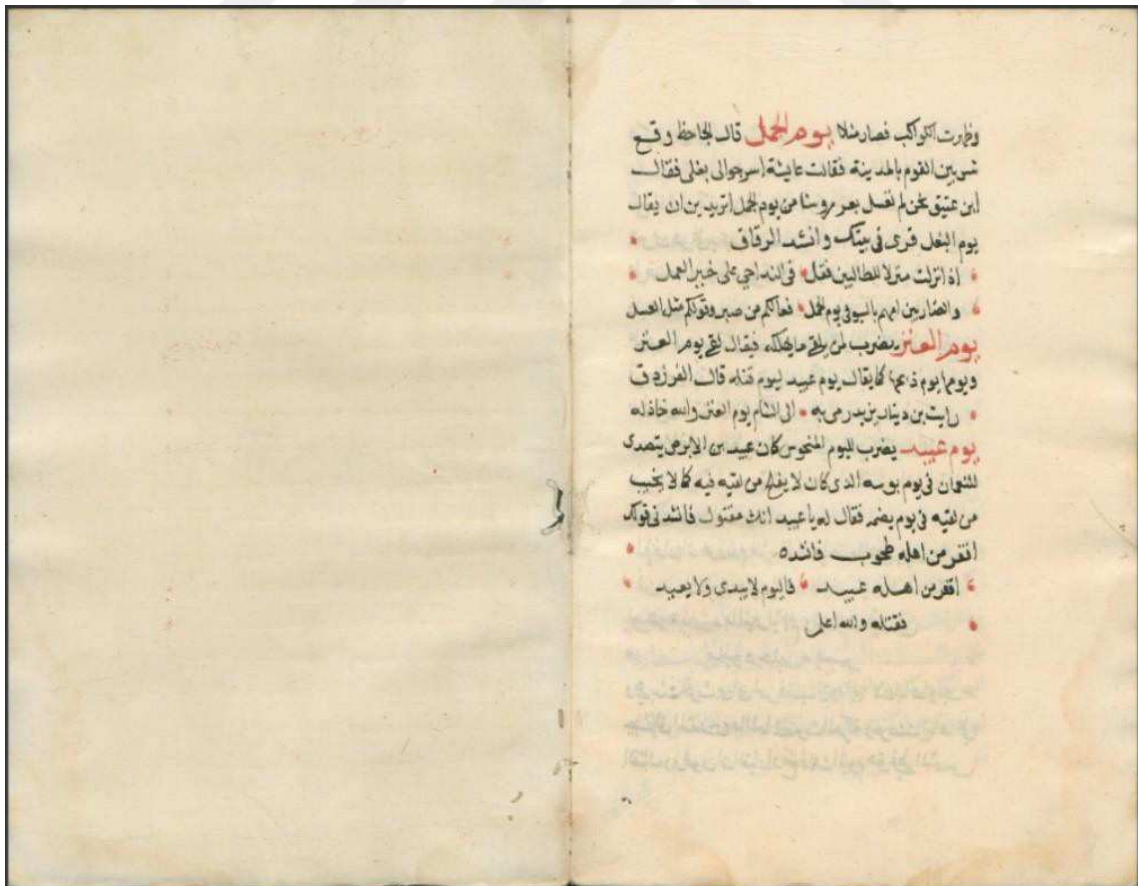 وظهرت الكواكب فصار مثلا يوم الجمل قال الجاحظ وقع
شر بين القوم بالمدينة فقالت عايشة اسرجوالى بغلى فقال
ابن عتيق نحن لم نغسل بعد روسنا من يوم الجمل اتريدين ان يقال
يوم البغل قرى فى بيتك وانشد الرقاق
منزلا للطالبين فقل فى الندا حي على خير العمل
والضاربين بالسيوف يوم الجمل من صبر وقولكم مثل العسل
يوم العنز يضرب لمن يلقى ما يهلكه فيقال لقى يوم العنز
ويومها يوم ذبحها كما يقال يوم عبيد ليوم قتله قال الفرزدق
رايت بن دينار يزيد رمى به الى الشام يوم العنز والله خاذله
يوم عبيد يضرب لليوم المنحوس كان عبيد بن الابرص يتصدى
للنعمان فى يوم بوسه الدى كان لا يفلح من لقيه فيه كما لا يخيب
من لقيه فى يوم فقال له يا عبيد انك مقتول فانشدنى قولك
اقفر من اهله ملحوب فانشده
اقفر من اهله عبيد فاليوم لا يبدى ولا يعيد
فقتله والله اعلم